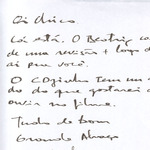 Oi Chico
Lá está. O Beatriz co
de uma revisão + longa d
ai que você.
O CD tem um
do do que gostarei
ouvir no filme.
Tudo de bom
Grande Abraço